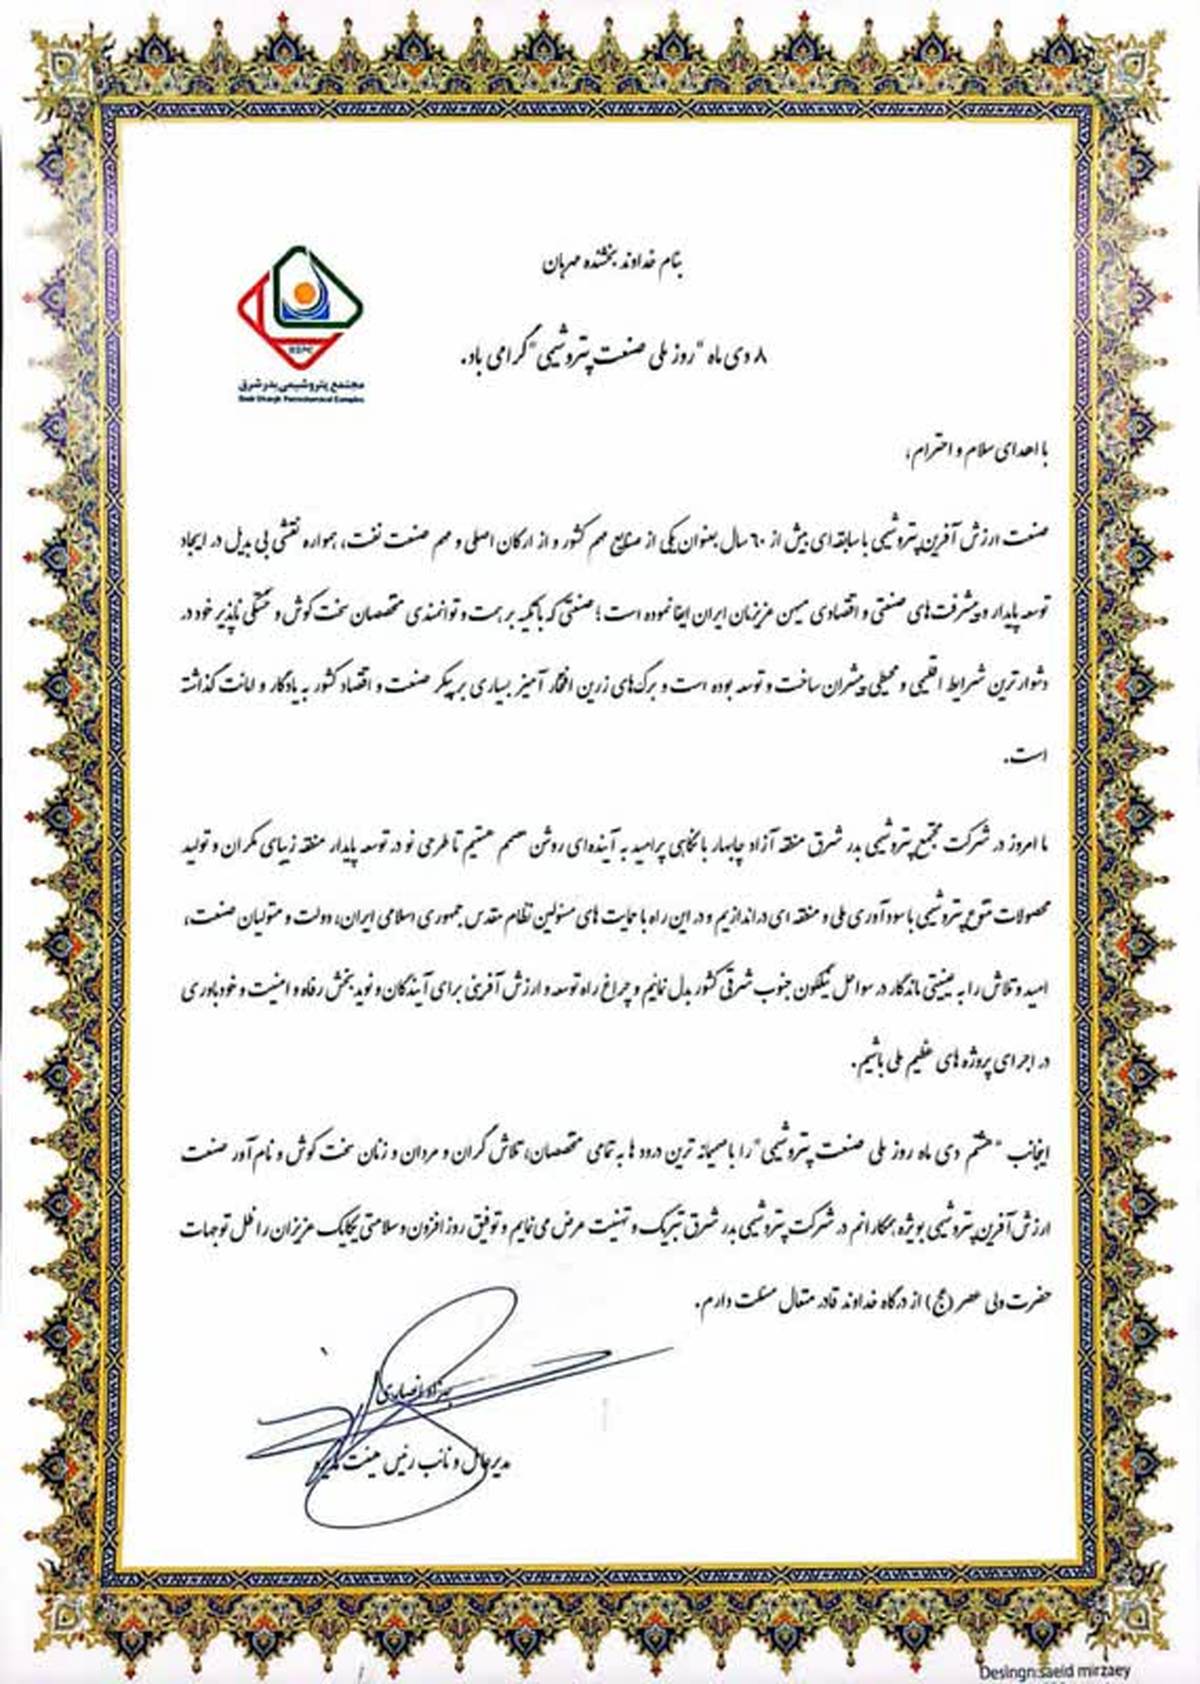 بنام خداوند بخشنده مهربان
BSPC
مجتمع پتروشیمی بدر شرق
Badr Shargh Petrochemical Complex
۸ دی ماه "روز ملی صنعت پتروشیمی" گرامی باد.
با اهدای سلام و احترام؛
صنعت ارزش آفرین پتروشیمی با سابقه ای بیش از ۶۰ سال بعنوان یکی از صنایع مهم کشور و از ارکان اصلی و مهم صنعت نفت، همواره نقشی بی بدیل در ایجاد
توسعه پایدار و پیشرفت های صنعتی و اقتصادی میهن عزیزمان ایران ایفا نموده است؛ صنعتی که با تکیه بر همت و توانمندی متخصصان سخت کوش و خستگی ناپذیر خود در
دشوارترین شرایط اقلیمی و محیطی پیشران ساخت و توسعه بوده است و برگ های زرین افتخار آمیز بسیاری بر پیکر صنعت و اقتصاد کشور به یادگار و امانت گذاشته
است.
ما امروز در شرکت مجتمع پتروشیمی بدر شرق منطقه آزاد چابهار با نگاهی پرامید به آینده ای روشن مصمم هستیم تا طرحی نو در توسعه پایدار منطقه زیبای مکران و تولید
محصولات متنوع پتروشیمی با سودآوری ملی و منطقه ای دراندازیم و در این راه با حمایت های مسئولین نظام مقدس جمهوری اسلامی ایران، دولت و متولیان صنعت،
امید و تلاش را به عینیتی ماندگار در سواحل نیلگون جنوب شرقی کشور بدل نماییم و چراغ راه توسعه و ارزش آفرینی برای آیندگان و نوید بخش رفاه و امنیت و خودباوری
در اجرای پروژه های عظیم ملی باشیم.
اینجانب "هشتم دی ماه روز ملی صنعت پتروشیمی" را با صمیمانه ترین درود ها به تمامی متخصصان، تلاش گران و مردان و زنان سخت کوش و نام آور صنعت
ارزش آفرین پتروشیمی بویژه همکارانم در شرکت پتروشیمی بدر شرق تبریک و تهنیت عرض می نمایم و توفیق روزافزون و سلامتی یکایک عزیزان را ظل توجهات
حضرت ولی عصر (عج) از درگاه خداوند قادر متعال مسئلت دارم.
بهزاد انصاری
مدیرعامل و نائب رئیس هیئت مدیره
Desingn:saeid mirzaey